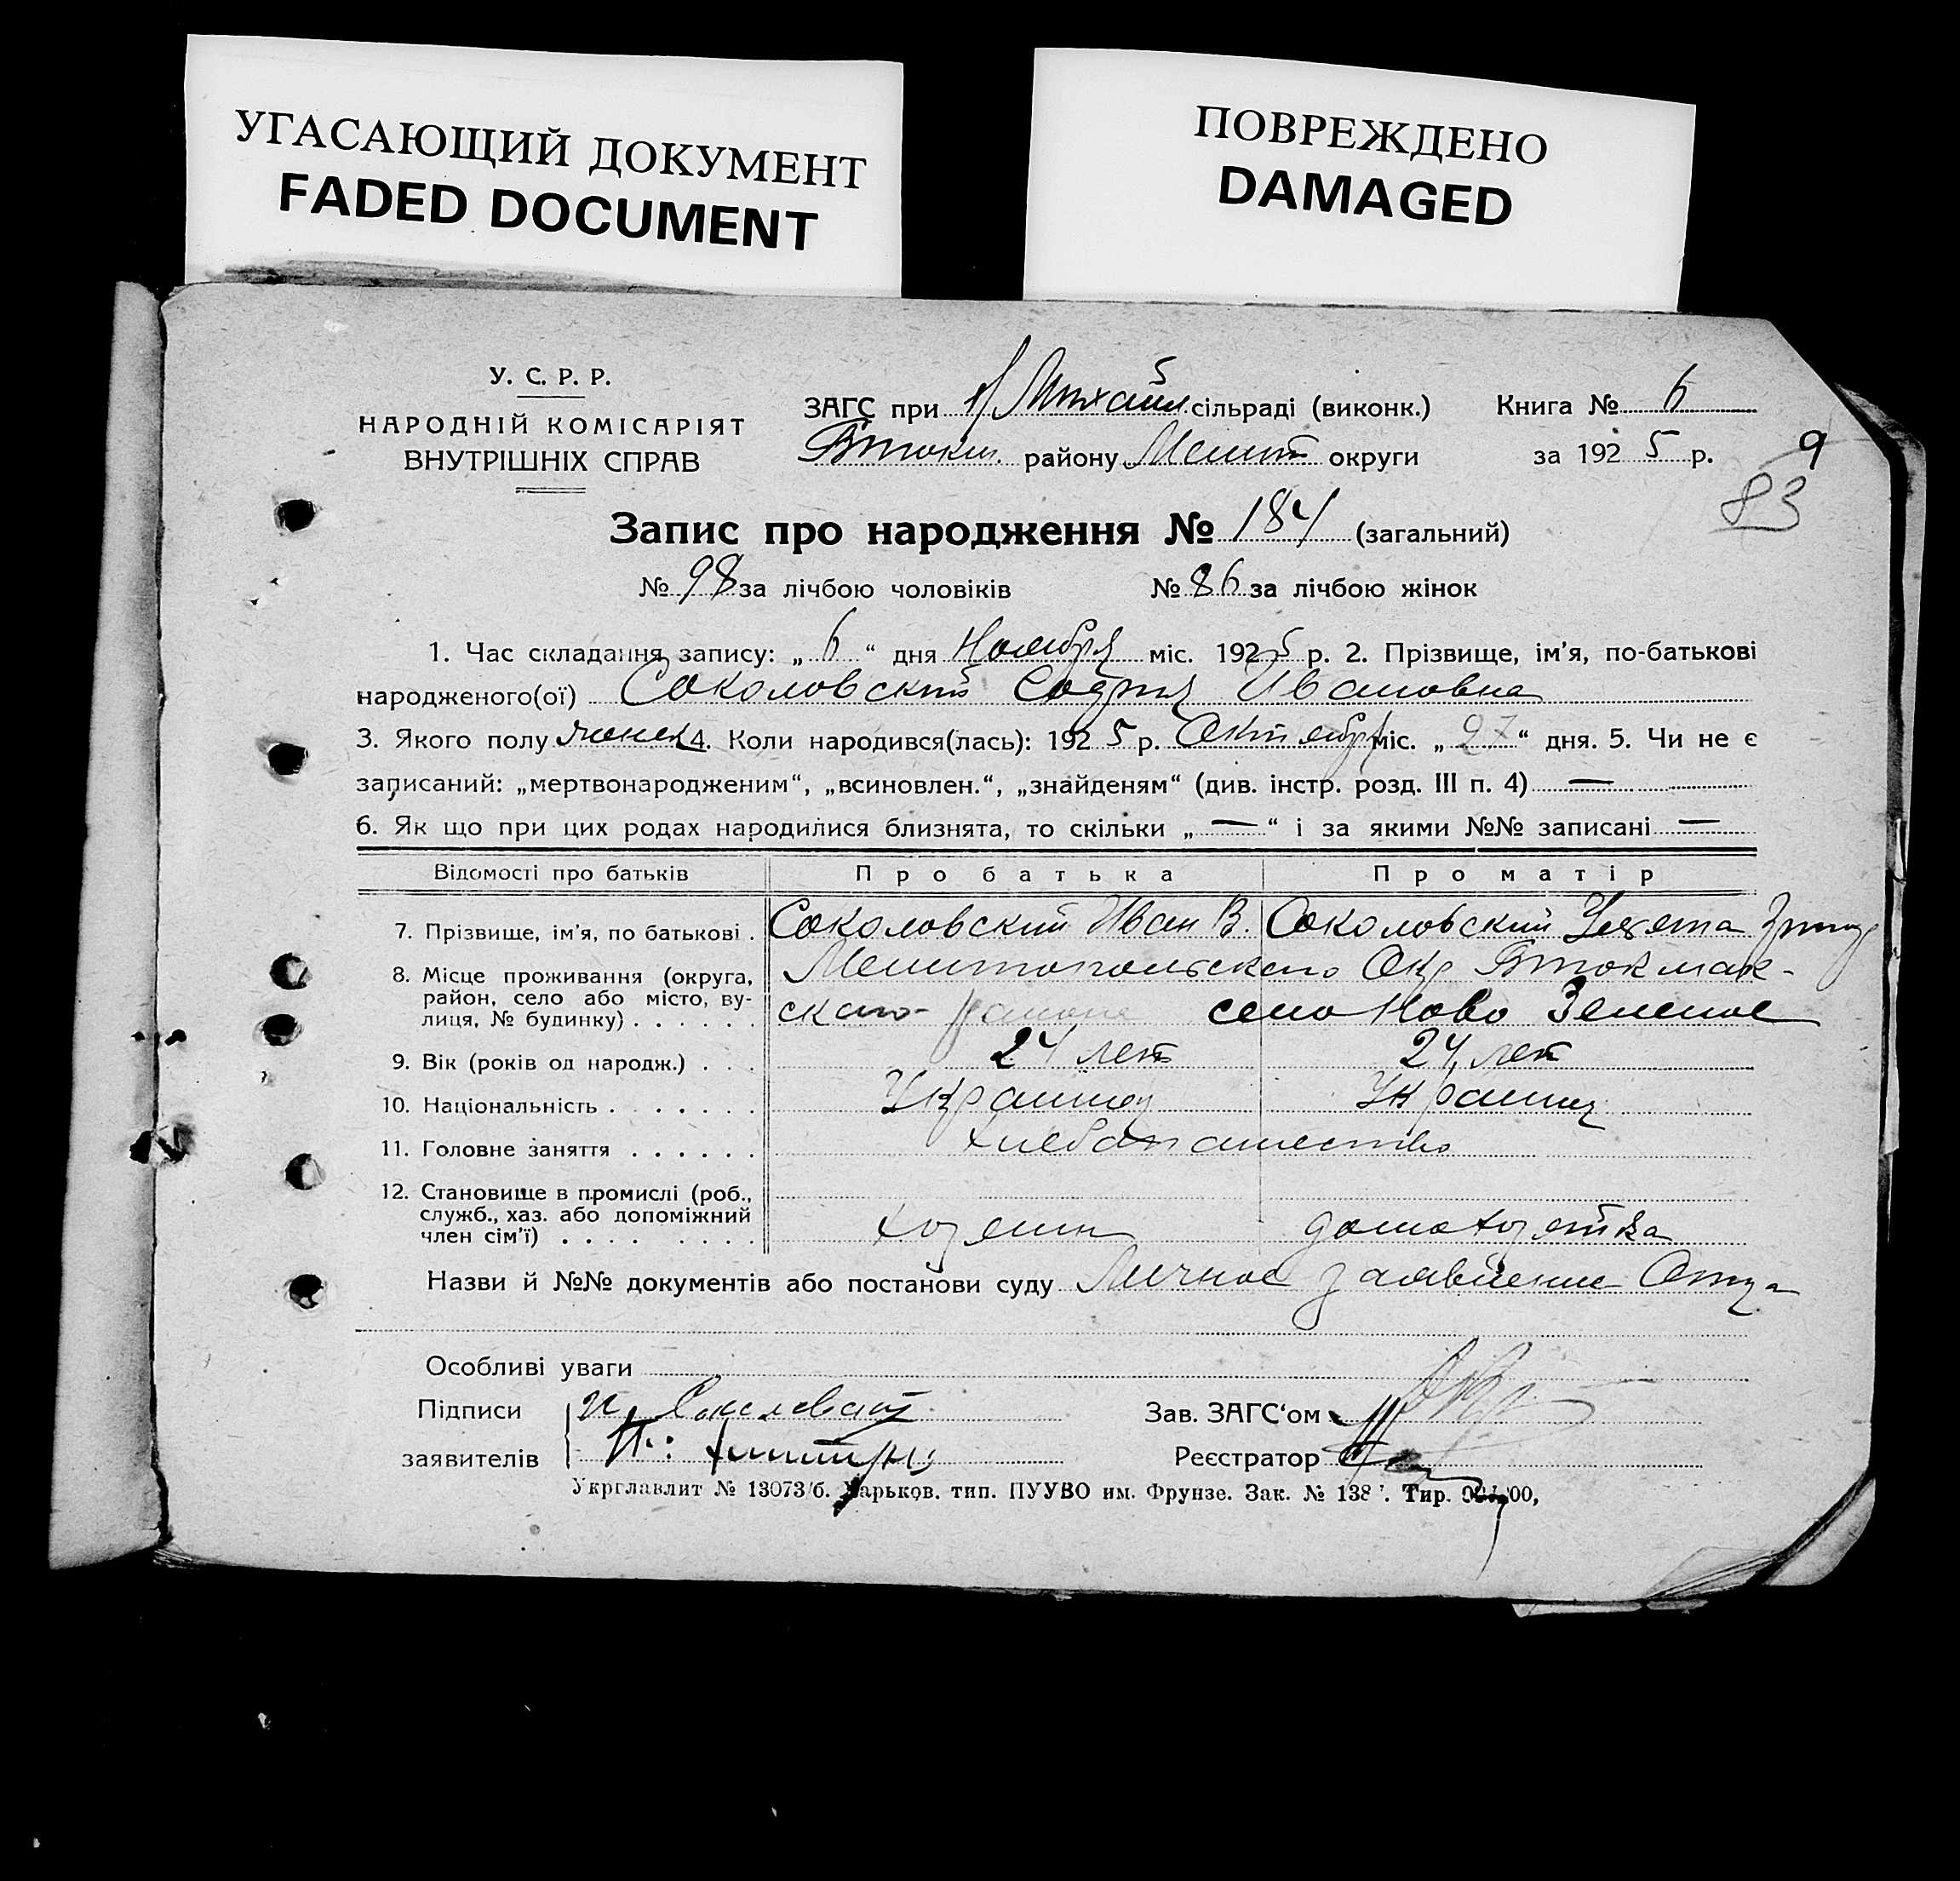 УГАСАЮЩИЙ ДОКУМЕНТ
FADED DOCUMENT
ПОВРЕЖДЕНО
DAMAGED
У. С. Р. Р.
НАРОДНІЙ КОМІСАРІЯТ
ВНУТРІШНІХ СПРАВ
ЗАГС при Михайл. сільраді (виконк.) Книга № 6
Втокм. району Мелит округи за 1925 р.
9
83
Запис про народження № 184 (загальний)
№ 98 за лічбою чоловіків № 86 за лічбою жінок
1. Час складання запису: „6“ дня Ноября міс. 1925 р. 2. Прізвище, ім’я, по-батькові
народженого(ої) Соколовский София Ивановна
3. Якого полу женск 4. Коли народився(лась): 1925 р. Октября міс. „27“ дня. 5. Чи не є
записаний: „мертвонародженим“, „всиновлен.“, „знайденям“ (див. інстр. розд. III п. 4) —
6. Як що при цих родах народилися близнята, то скільки „—“ і за якими №№ записані —
Відомості про батьків Про батька Про матір
7. Прізвище, ім’я, по батькові . Соколовский Иван В. Соколовский
8. Місце проживання (округа, район, село або місто, вулиця, № будинку) . . . . . . Мелитопольского Окр Втокмак-
ского района село Ново Зеленое
9. Вік (років од народж.) . . . 24 лет 24 лет
10. Національність . . . . . . . Украинц Украинц
11. Головне заняття . . . . . . Хлебопашество
12. Становище в промислі (роб., служб., хаз. або допоміжний член сім’ї) . . . . . . . . хозяин домохозяйка
Назви й №№ документів або постанови суду Личное заявление Отца
Особливі уваги
Підписи И. Соколовский Зав. ЗАГС‘ом
заявителів Реєстратор
Укрглавлит № 13073/б. Харьков. тип. ПУУВО им. Фрунзе. Зак. № 138 . Тир.